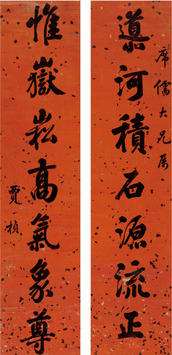 導河積石源流正
席儒大兄屬
惟嶽崧高氣象尊
賈楨